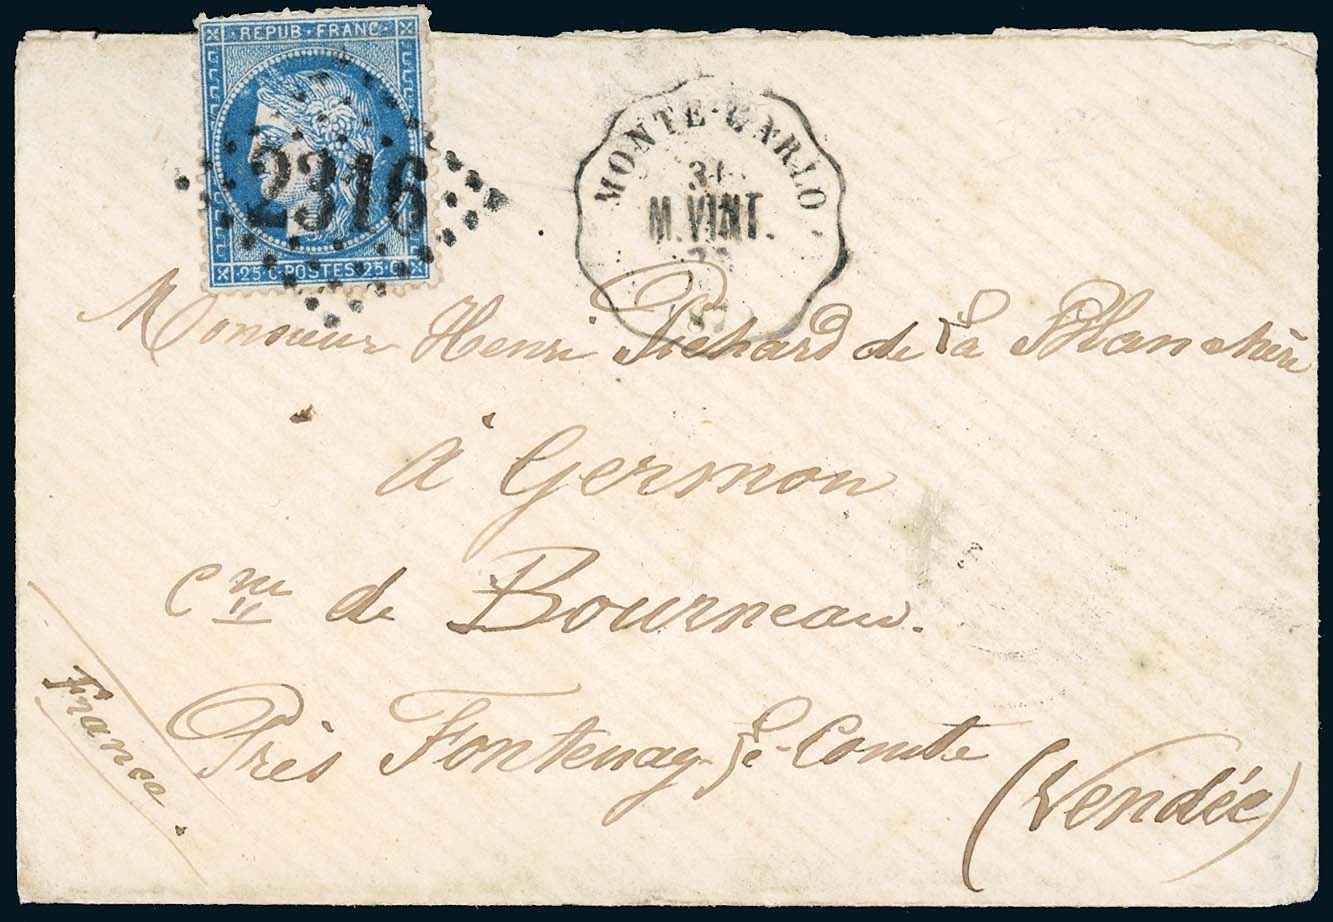 REPUB·FRANC
2316
25·C·POSTES·25·C
MONTE-CARLO
M.VINT.
Monsieur Henri Pichard de la Blanchère
à Germon
Cne de Bourneau.
Près Fontenay-le-Comte
(Vendée)
France.